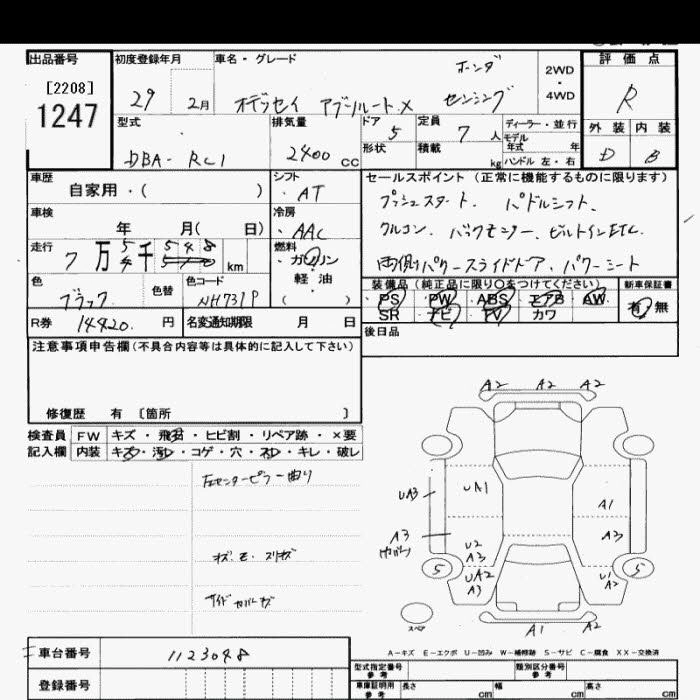 出品番号
[2208]
1247
初度登録年月
29 2月
車名・グレード
ホンダ
オデッセイ アブソルート X センシング
2WD
・
4WD
評価点
R
外装 内装
D B
型式
DBA-RC1
排気量
2400 cc
ドア
5
形状
定員
7 人
積載
kg
ディーラー・並行
モデル
年式 年
ハンドル 左・右
車歴
自家用・( )
シフト
・AT
車検
年 月( 日)
冷房
・AAC
走行
7 万 5 千 548 km
燃料
ガソリン
軽油
( )
色
ブラック
色替
色コード
NH731P
R券 14420 円
名変通知期限 月 日
セールスポイント(正常に機能するものに限ります)
プッシュスタート、パドルシフト、
クルコン、バックモニター、ビルトインETC、
両側パワースライドドア、パワーシート
装備品(純正品に限り○をつけてください)
PS PW ABS エアB AW
SR ナビ TV カワ
新車保証書
有・無
後日品
注意事項申告欄(不具合内容等は具体的に記入して下さい)
修復歴 有 [箇所 ]
検査員 FW キズ・飛石・ヒビ割・リペア跡・×要
記入欄 内装 キズ・汚れ・コゲ・穴・スレ・キレ・破レ
左センターピラー曲り
サイドカバーキズ
A2 A2 A2
UA3
UA1
A1
A3
A3
U2
A3
UA2
A3
U1
A2
5
5
スペア
A1 A2
A-キズ E-エクボ U-凹み W-補修跡 S-サビ C-腐食 XX-交換済
車台番号
1123048
登録番号
型式指定番号
参考
類別区分番号
参考
車庫証明用
参考
長さ cm 幅 cm 高さ cm